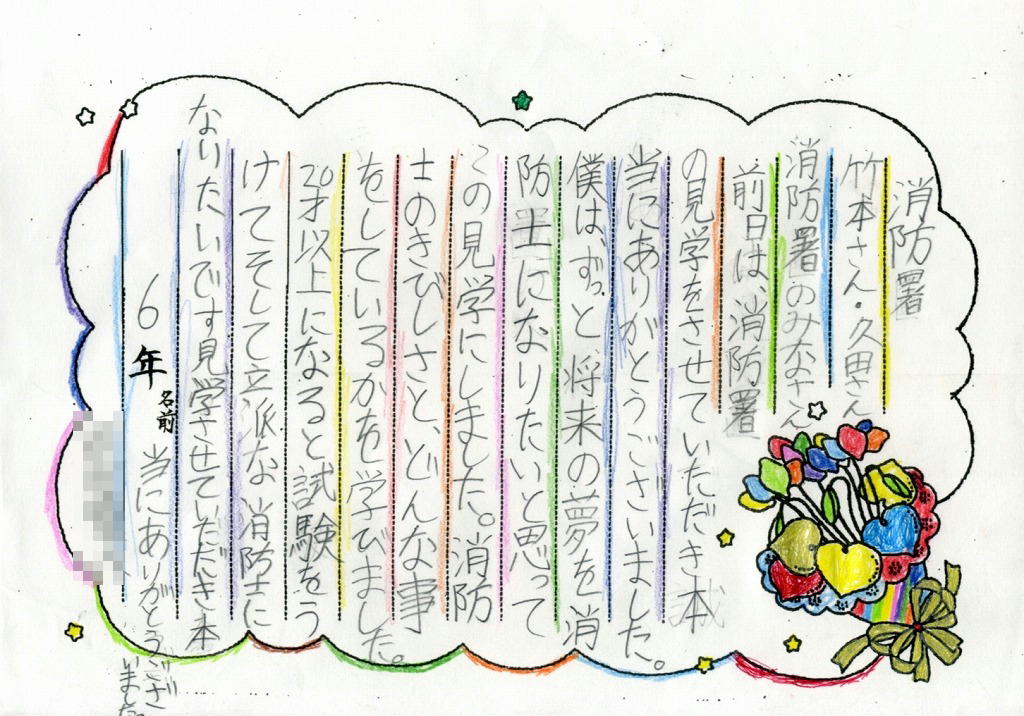 消防署
竹本さん・久田さん
消防署のみなさん
前日は、消防署
の見学をさせていただき本
当にありがとうございました。
僕は、ずっと将来の夢を消
防士になりたいと思って
この見学にしました。消防
士のきびしさと、どんな事
をしているかを学びました。
20才以上になると試験をう
けてそして立派な消防士に
なりたいです見学させていただき本
当にありがとうござ
いました。
6年
名前